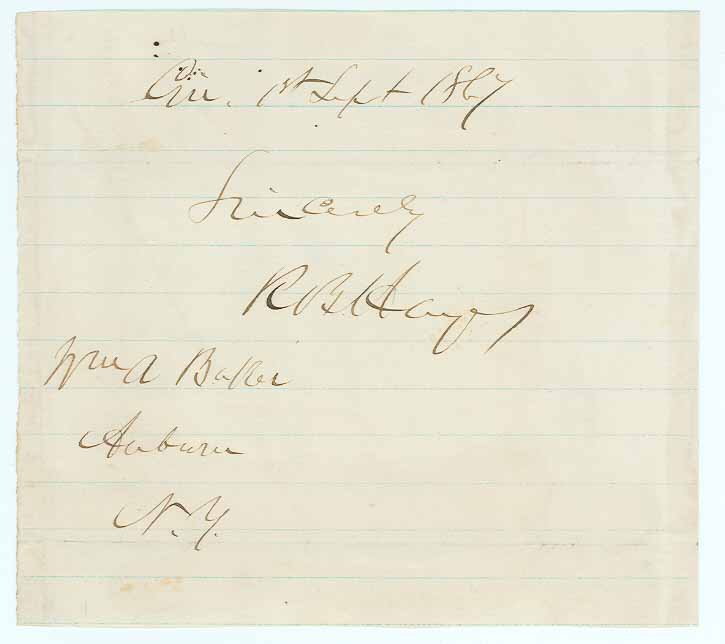 Cin. 1st Sept 1867
Sincerely
R B Hayes
Wm A Baker
Auburn
N.Y.